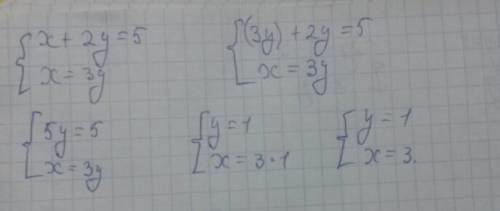 { x + 2y = 5
x = 3y
{ (3y) + 2y = 5
x = 3y
{ 5y = 5
x = 3y
{ y = 1
x = 3 · 1
{ y = 1
x = 3.